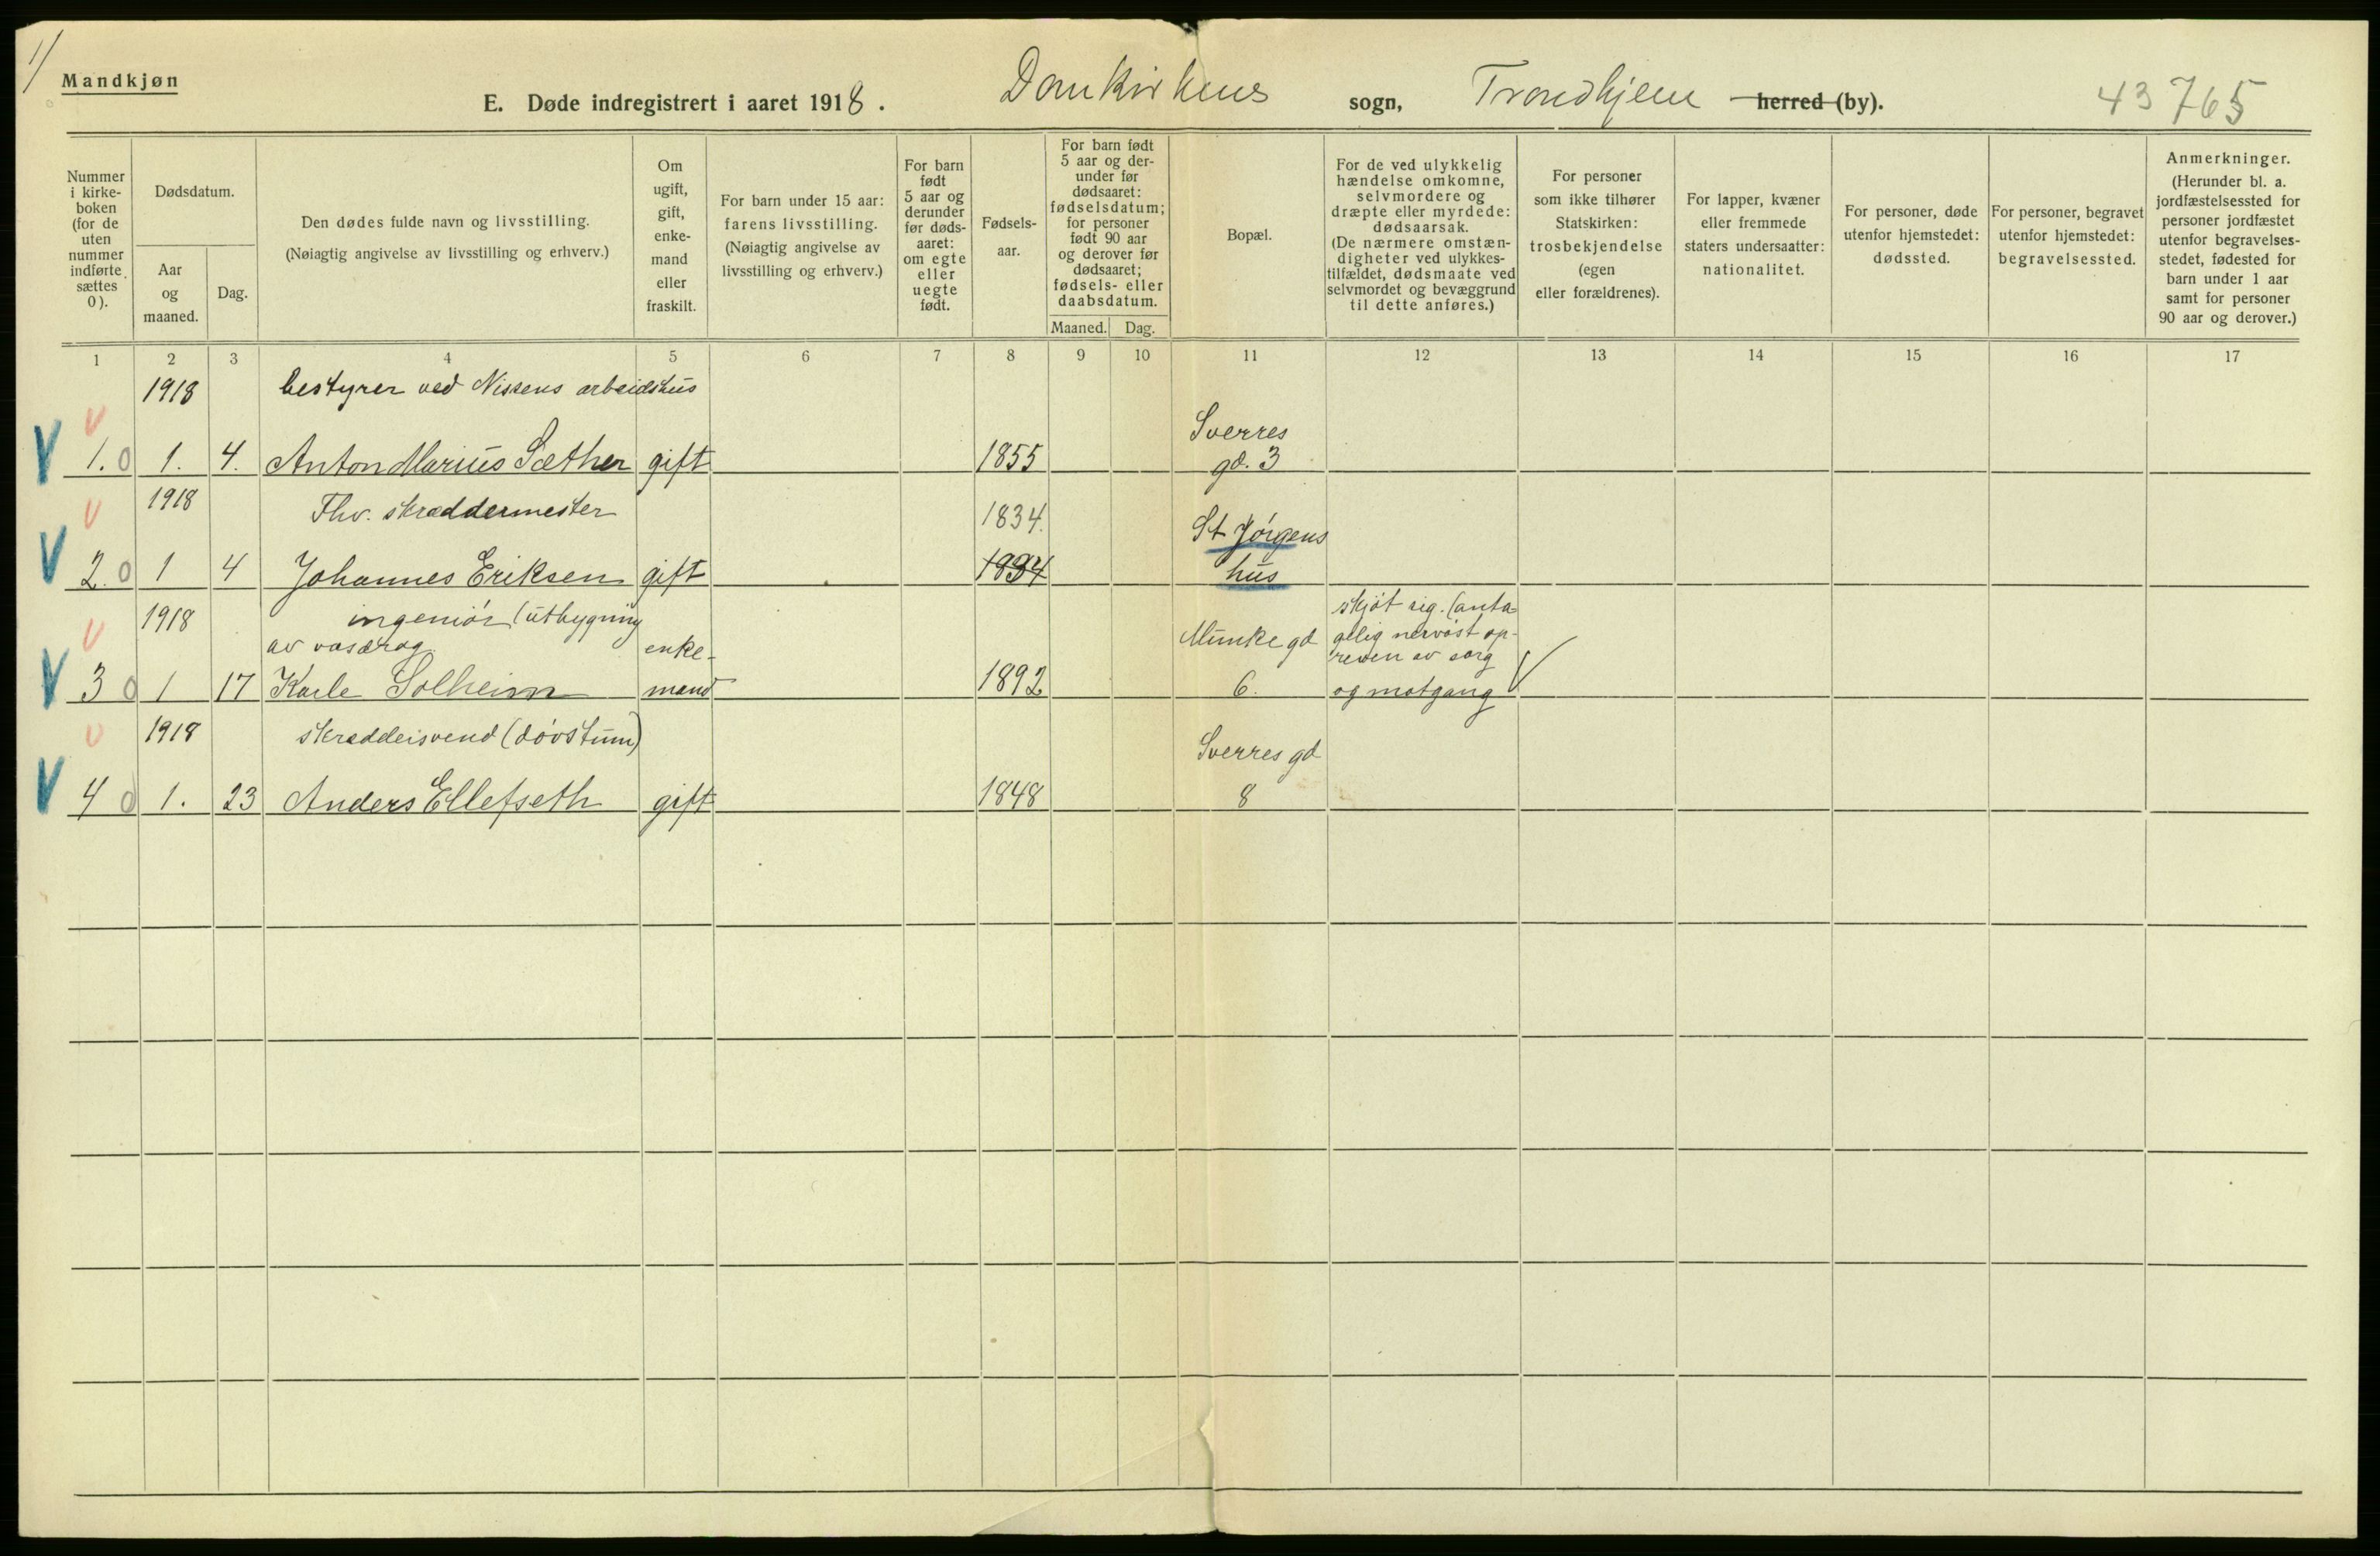 1/
Mandkjøn
E. Døde indregistrert i aaret 1918. Domkirkens sogn, Trondhjem herred (by). 43 765
Nummer
i kirke-
boken
(for de
uten
nummer
indførte
sættes
0).
Dødsdatum.
Aar
og
maaned.
Dag.
Den dødes fulde navn og livsstilling.
(Nøiagtig angivelse av livsstilling og erhverv.)
Om
ugift,
gift,
enke-
mand
eller
fraskilt.
For barn under 15 aar:
farens livsstilling.
(Nøiagtig angivelse av
livsstilling og erhverv.)
For barn
født
5 aar og
derunder
før døds-
aaret:
om egte
eller
uegte
født.
Fødsels-
aar.
For barn født
5 aar og der-
under før
dødsaaret:
fødselsdatum;
for personer
født 90 aar
og derover før
dødsaaret;
fødsels- eller
daabsdatum.
Maaned. Dag.
Bopæl.
For de ved ulykkelig
hændelse omkomne,
selvmordere og
dræpte eller myrdede:
dødsaarsak.
(De nærmere omstæn-
digheter ved ulykkes-
tilfældet, dødsmaate ved
selvmordet og bevæggrund
til dette anføres.)
For personer
som ikke tilhører
Statskirken:
trosbekjendelse
(egen
eller forældrenes).
For lapper, kvæner
eller fremmede
staters undersaatter:
nationalitet.
For personer, døde
utenfor hjemstedet:
dødssted.
For personer, begravet
utenfor hjemstedet:
begravelsessted.
Anmerkninger.
(Herunder bl. a.
jordfæstelsessted for
personer jordfæstet
utenfor begravelses-
stedet, fødested for
barn under 1 aar
samt for personer
90 aar og derover.)
1 2 3 4 5 6 7 8 9 10 11 12 13 14 15 16 17
1918 bestyrer ved Nissens arbeidshus
Sverres
V 1. 0 1. 4. Anton Marius Sæther gift 1855 gd. 3
1918 Fhv. skræddermester 1834. St Jörgens
V 2. 0 1 4 Johannes Eriksen gift 1834 hus
1918 ingeniör (utbygning skjöt sig. (anta
av vasdrag. enke- Munke gd gelig nervöst op-
reven av sorg
V 3 0 1 17 Karle Solheim mand 1892 6. og motgang
1918 skreddersvend (dövstum) Sverres gd
V 4 0 1. 23 Anders Ellefseth gift 1848 8